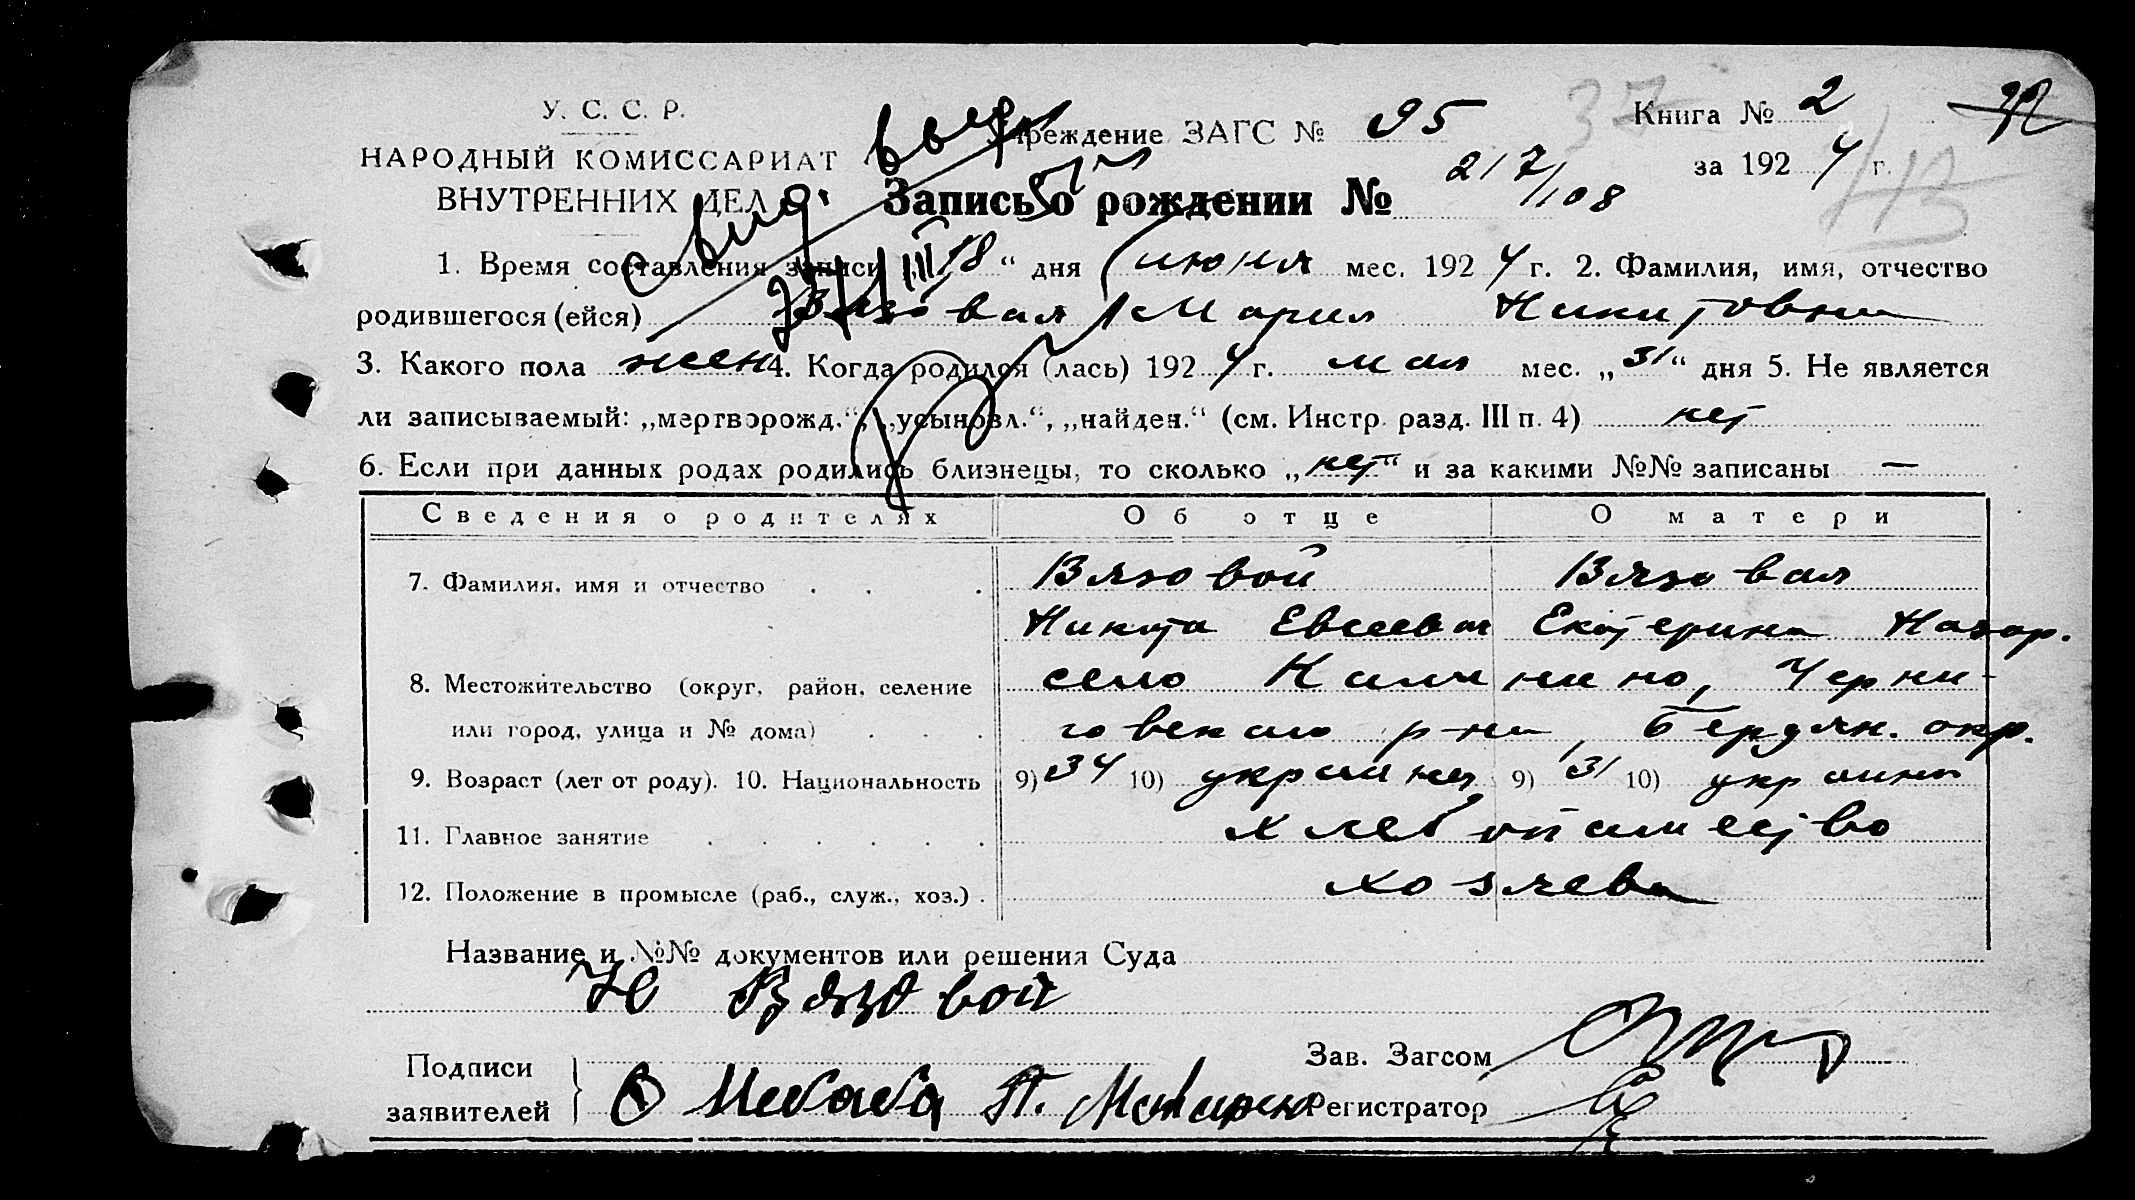 У. С. С. Р.
НАРОДНЫЙ КОМИССАРИАТ
ВНУТРЕННИХ ДЕЛ
Учреждение ЗАГС № 95
Книга № 2
за 1924 г.
37
Запись о рождении № 217/108
1. Время составления записи „18“ дня июня мес. 1924 г. 2. Фамилия, имя, отчество
родившегося (ейся) Вязовая Мария Никитовна
3. Какого пола жен 4. Когда родился (лась) 1924 г. мая мес. „31“ дня 5. Не является
ли записываемый: „мертворожд.“, „усыновл.“, „найден.“ (см. Инстр. разд. III п. 4) нет
6. Если при данных родах родились близнецы, то сколько „нет“ и за какими №№ записаны —
Сведения о родителях Об отце О матери
7. Фамилия, имя и отчество Вязовой Вязовая
Никита Евсеевич Екатерина Назар.
8. Местожительство (округ, район, селение село Черни-
или город, улица и № дома) говского р-на Бердян. окр.
9. Возраст (лет от роду). 10. Национальность 9) 34 10) украинец 9) 31 10) украинка
11. Главное занятие хлебопашество
12. Положение в промысле (раб., служ., хоз.) хозяева
Название и №№ документов или решения Суда
Н Вязовой
Подписи
заявителей
Зав. Загсом
Регистратор